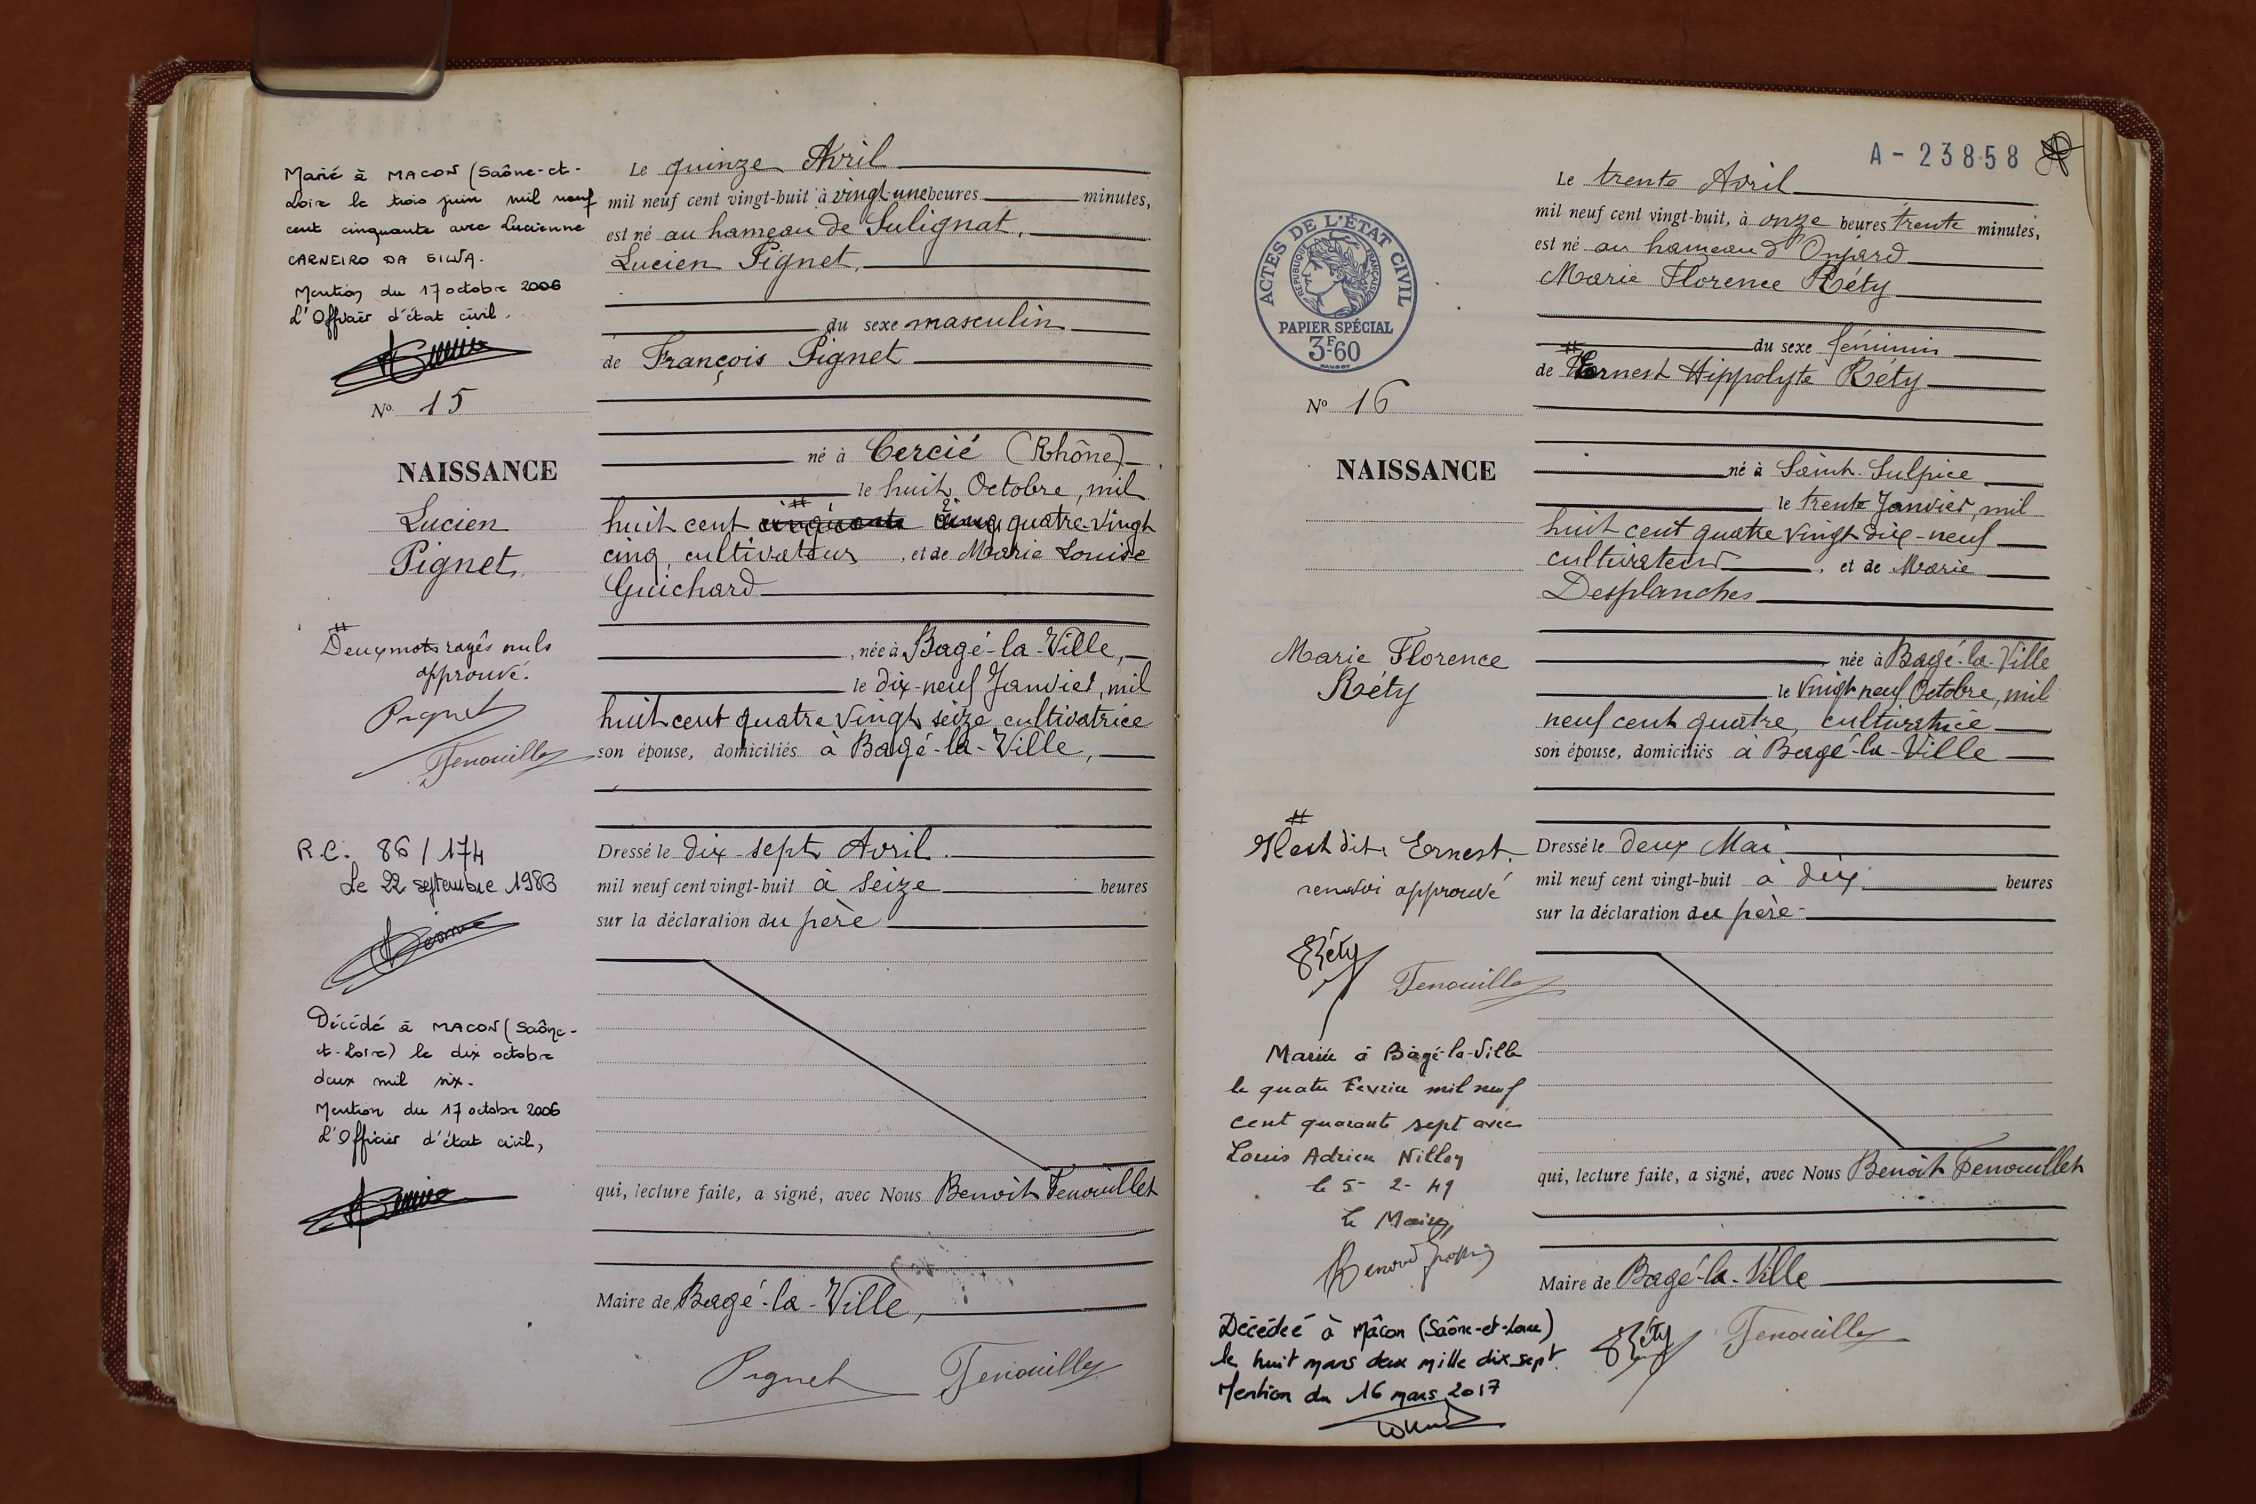 Marié à MACON (Saône-et-
Loire le trois juin mil neuf
cent cinquante avec Lucienne
CARNEIRO DA SILVA.
Mention du 17 octobre 2006
L'Officier d'état civil.
No. 15
NAISSANCE
Lucien
Pignet,
# Deux mots rayés nuls
approuvé.
Pignet
Fenouillet
R.C. 86 / 174
Le 22 septembre 1986
Décédé à MACON (Saône-
et-Loire) le dix octobre
deux mil six.
Mention du 17 octobre 2006
L'Officier d'état civil,
Le quinze Avril
mil neuf cent vingt-huit à vingt-une heures minutes,
est né au hameau de Sulignat,
Lucien Pignet,
du sexe masculin
de François Pignet
né à Cercié (Rhône)
le huit Octobre, mil
huit cent cinquante cinq quatre-vingt
cinq, cultivateur, et de Marie Louise
Guichard
, née à Bagé-la-Ville,
le dix-neuf Janvier, mil
huit cent quatre vingt seize, cultivatrice
son épouse, domiciliés à Bagé-la-Ville,
Dressé le dix-sept Avril
mil neuf cent vingt-huit à seize heures
sur la déclaration du père
qui, lecture faite, a signé, avec Nous Benoît Fenouillet
Maire de Bagé-la-Ville,
Pignet Fenouillet
A-23858
ACTES DE L'ÉTAT CIVIL
RÉPUBLIQUE FRANÇAISE
PAPIER SPÉCIAL
3F60
No 16
NAISSANCE
Marie Florence
Réty
# Il est dit, Ernest.
renvoi approuvé
Réty
Fenouillet
Mariée à Bâgé-la-Ville
le quatre Février mil neuf
cent quarante sept avec
Louis Adrien
le 5-2-49
le Maire,
Décédée à Mâcon (Saône-et-Loire)
le huit mars deux mille dix sept.
Mention du 16 mars 2017
Le trente Avril
mil neuf cent vingt-huit, à onze heures trente minutes,
est né au hameau d'Onjard
Marie Florence Réty
du sexe féminin
de # Ernest Hippolyte Réty
né à Saint-Sulpice
le trente Janvier, mil
huit cent quatre vingt dix-neuf
cultivateur, et de Marie
Desplanches
née à Bagé-la-Ville
le vingt neuf Octobre, mil
neuf cent quatre, cultivatrice
son épouse, domiciliés à Bagé-la-Ville
Dressé le deux Mai
mil neuf cent vingt-huit à dix heures
sur la déclaration du père-
qui, lecture faite, a signé, avec Nous Benoît Fenouillet
Maire de Bagé-la-Ville
Réty Fenouillet